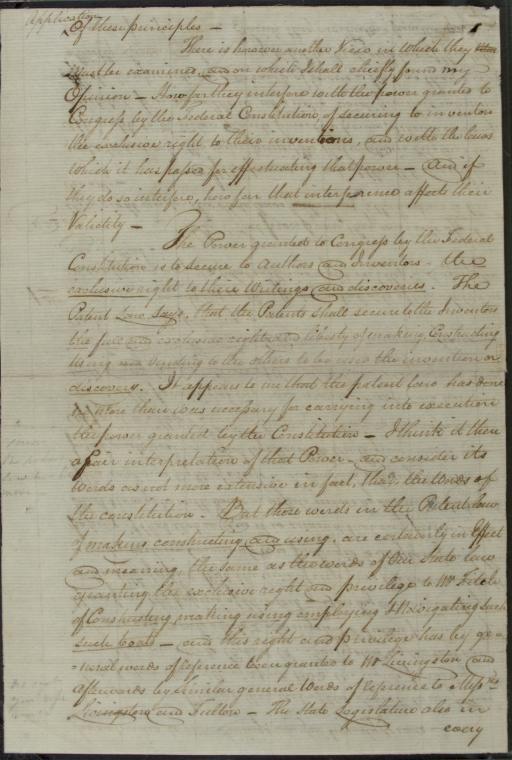 Application
Of these principles —
There is however another View in which they
must be examined, and on which I shall chiefly found my
Opinion — How far they interfere with the power granted to
Congress by the Federal Constitution, of securing to inventors
the exclusive right to their inventions, and with the laws
which it has passed for effectuating that power — And if
they do so interfere, how far that interference affects their
Validity —
The Power granted to Congress by the Federal
Constitution is to secure to Authors and Inventors the
exclusive right to their Writings and discoveries. The
Patent Law says, that the Patents shall secure to the Inventors
the full and exclusive right and liberty of making Constructing
using and vending to others to be used the invention or
discovery. It appears to me that the patent law has done
no more than was necessary for carrying into execution
the power granted by the Constitution — I think it then
a fair interpretation of that Power and consider its
words as not more extensive in fact, than the Words of
the Constitution. But those words in the Patent law
of making, constructing, and using, are certainly in Effect
and meaning, the same as the words of Our State law
granting the exclusive right and privilege to Mr Fitch
of Constructing making using employing & Navigating such
such boats — and this right and privilege has by ge=
=neral words of reference been granted to Mr Livingston and
afterwards by similar general Words of reference to Messrs
Livingston and Fulton — The State Legislature also in
every